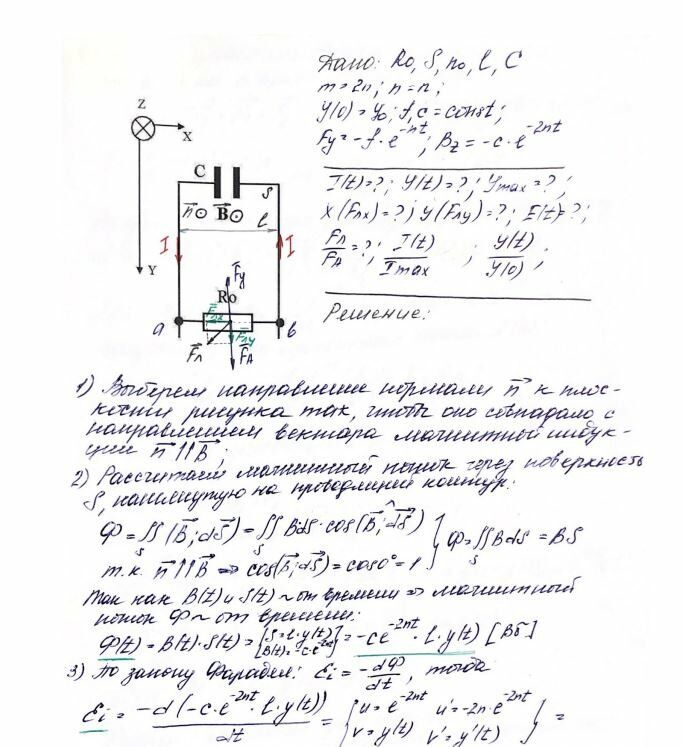 Дано: R₀, S, n₀, l, C
m=2n; n=n;
y(0)=y₀; f, c=const;
Fy=-f·e^-nt; Bz=-c·e^-2nt
I(t)=?; y(t)=?; ymax=?;
x(Fлx)=?; y(Fлy)=?; E(t)=?;
Fл/FA=?; I(t)/Imax; y(t)/y(0);
Решение:
Z
X
Y
C
S
n⊙ B⊙
l
I
I
Fy
R₀
a
b
Fлx
Fлy
Fл
FA
1) Выберем направление нормали n к плос-
кости рисунка так, чтобы оно совпадало с
направлением вектора магнитной индук-
ции n⇈B;
2) Рассчитаем магнитный поток через поверхность
S, натянутую на проводящий контур:
Ф=∬(B;dS)=∬Bds·cos(B;dS)
т.к. n⇈B ⇒ cos(B;dS)=cos0°=1 } Ф=∬Bds=BS
Так как B(t) и S(t) ~ от времени ⇒ магнитный
поток Ф ~ от времени:
Ф(t)=B(t)·S(t)=[S=l·y(t) B(t)=-c·e^-2nt]=-ce^-2nt·l·y(t) [Вб]
3) По закону Фарадея: Ei=-dФ/dt, тогда
Ei=-d(-c·e^-2nt·l·y(t))/dt={u=e^-2nt u'=-2n·e^-2nt
v=y(t) v'=y'(t)}=